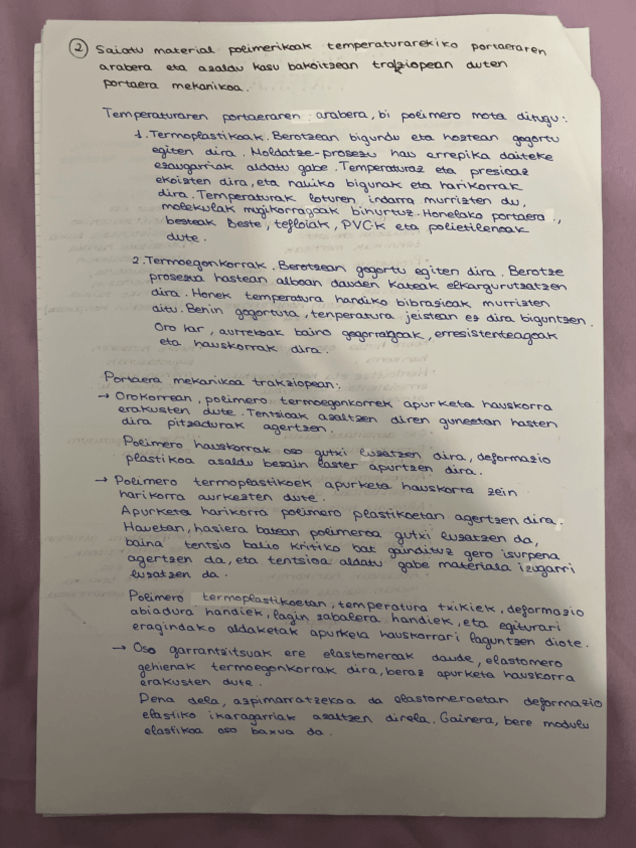 2 Saiatu material polimerikoak temperaturarekiko portaeraren
arabera eta azaldu kasu bakoitzean trakziopean duten
portaera mekanikoa.
Temperaturaren portaeraren arabera, bi polimero mota ditugu:
1. Termoplastikoak. Berotzean bigundu eta hoztean gogortu
egiten dira. Moldatze-prozesu hau errepika daiteke
ezaugarriak aldatu gabe. Temperaturaz eta presioaz
ekoizten dira, eta nahiko bigunak eta harikorrak
dira. Temperaturak loturen indarra murrizten du,
molekulak mugikorragoak bihurtuz. Honelako portaera.,
besteak beste, tefloiak, PVCk eta polietilenoak
dute.
2. Termoegonkorrak. Berotzean gogortu egiten dira. Berotze
prozesua hastean alboan dauden kateak elkargurutzatzen
dira. Honek temperatura handiko bibrazioak murrizten
ditu. Behin gogortuta, tenperatura jeistean ez dira biguntzen.
Oro har, aurrekoak baino gogorragoak, erresistenteagoak
eta hauskorrak dira.
Portaera mekanikoa trakziopean:
→ Orokorrean, polimero termoegonkorrek apurketa hauskorra
erakusten dute. Tentsioak azaltzen diren guneetan hasten
dira pitzadurak agertzen.
Polimero hauskorrak oso gutxi luzatzen dira, deformazio
plastikoa azaldu bezain laster apurtzen dira.
→ Polimero termoplastikoek apurketa hauskorra zein
harikorra aurkezten dute.
Apurketa harikorra polimero plastikoetan agertzen dira.
Hauetan, hasiera batean polimeroa gutxi luzatzen da,
baina tentsio balio kritiko bat gaindituz gero isurpena
agertzen da, eta tentsioa aldatu gabe materiala izugarri
luzatzen da.
Polimero termoplastikoetan, temperatura txikiek, deformazio
abiadura handiek, lagin zabalera handiek, eta egiturari
eragindako aldaketak apurketa hauskorrari laguntzen diote.
→ Oso garrantzitsuak ere elastomeroak daude, elastomero
gehienak termoegonkorrak dira, beraz apurketa hauskorra
erakusten dute.
Dena dela, azpimarratzekoa da elastomeroetan deformazio
elastiko ikaragarriak azaltzen direla. Gainera, bere modulu
elastikoa oso baxua da.